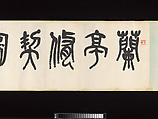 蘭亭脩禊圖